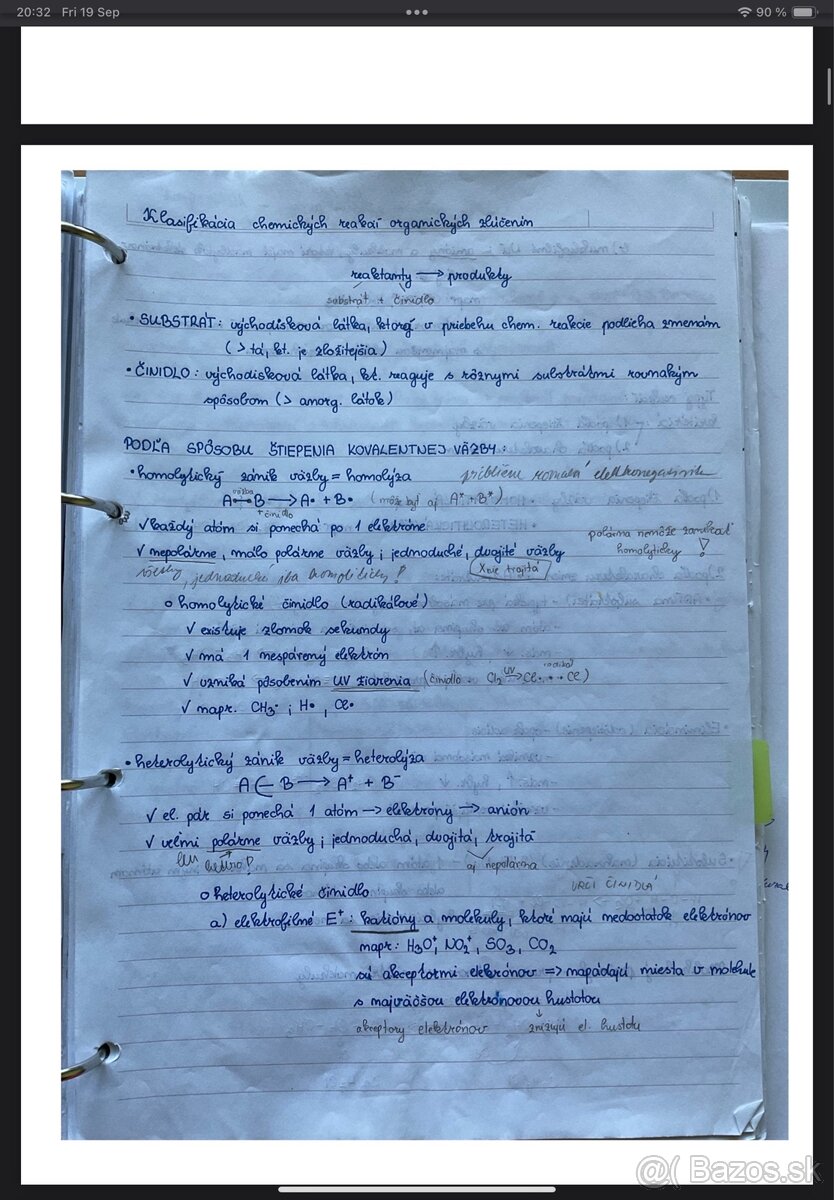 20:32 Fri 19 Sep
90 %
Klasifikácia chemických reakcií organických zlúčenín
reaktanty → produkty
substrát + činidlo
• SUBSTRÁT: východisková látka, ktorá v priebehu chem. reakcie podlieha zmenám
(> tá, kt. je zložitejšia)
• ČINIDLO: východisková látka, kt. reaguje s rôznymi substrátmi rovnakým
spôsobom (> anorg. látok)
PODĽA SPÔSOBU ŠTIEPENIA KOVALENTNEJ VÄZBY:
• homolytický zánik väzby = homolýza
približne rovnaká elektronegativita
väzba
A•—•B → A• + B• (môže byť aj A* + B*)
+ činidlo
✓ každý atóm si ponechá po 1 elektróne
polárna nemôže zanikať
homolyticky !
✓ nepolárne, málo polárne väzby; jednoduché, dvojité väzby
všetky, jednoduché iba homolyticky!
X nie trojitá
o homolytické činidlo (radikálové)
✓ existuje zlomok sekundy
✓ má 1 nespárený elektrón
✓ vzniká pôsobením UV žiarenia (činidlo
UV
radikál
Cl₂ → Cl• + •Cl)
✓ napr. CH₃• ; H• , Cl•
• heterolytický zánik väzby = heterolýza
A(— B → A⁺ + B⁻
✓ el. pár si ponechá 1 atóm → elektróny → anión
✓ veľmi polárne väzby; jednoduchá, dvojitá, trojitá
len hetero!
aj nepolárna
o heterolytické činidlo
URČÍ ČINIDLÁ
a) elektrofilné E⁺: katióny a molekuly, ktoré majú nedostatok elektrónov
napr.: H₃O⁺, NO₂⁺, SO₃, CO₂
sú akceptormi elekrónov => napádajú miesta v molekule
s najväčšou elektrónovou hustotou
akceptory elektrónov
znižujú el. hustotu
@( Bazos.sk